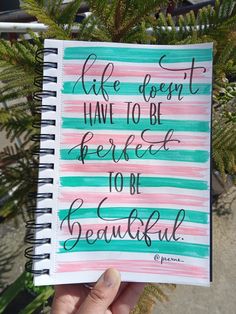 life doesn't
HAVE TO BE
perfect
TO BE
beautiful.